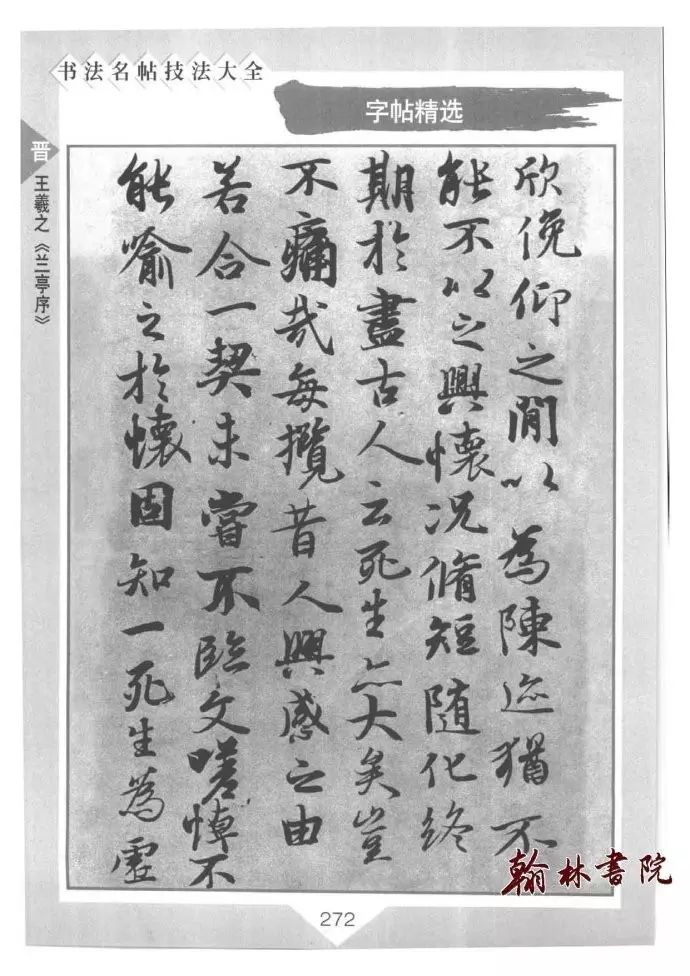 书法名帖技法大全
字帖精选
晋
王羲之《兰亭序》
欣俛仰之閒以為陳迹猶不
能不以之興懷況脩短随化終
期於盡古人云死生亦大矣豈
不痛哉每攬昔人興感之由
若合一契未嘗不臨文嗟悼不
能喻之於懷固知一死生為虛
翰林書院
272